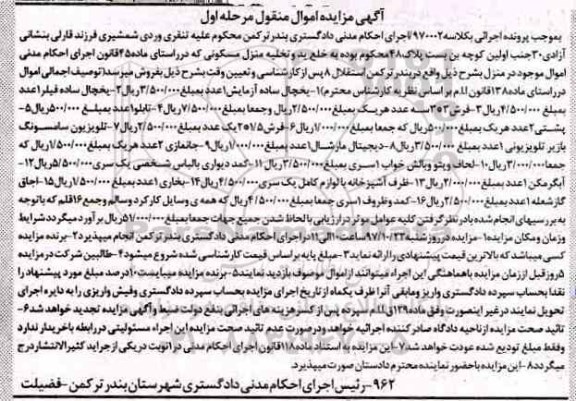 آگهی مزایده اموال منقول مرحله اول
بموجب پرونده اجرائی بکلاسه ۹۷۰۰۰۲ اجرای احکام مدنی دادگستری بندر ترکمن محکوم علیه تنقری وردی شمشیری فرزند قارلی بنشانی
آزادی ۳۰ جنب اولین کوچه بن بست پلاک ۴۸ محکوم بوده به خلع ید و تخلیه منزل مسکونی که در راستای ماده ۴۵ قانون اجرای احکام مدنی
اموال موجود در منزل بشرح ذیل واقع در بندر ترکمن استقلال ۸ پس از کارشناسی و تعیین وقت بشرح ذیل بفروش میرسد (توصیف اجمالی اموال
در راستای ماده ۱۳۸ قانون ا.ا.م بر اساس نظریه کارشناس محترم) ۱- یخچال ساده آزمایش ۱ عدد بمبلغ ۳/۵۰۰/۰۰۰ ریال ۲- یخچال ساده فیلر ۱ عدد
بمبلغ ۴/۵۰۰/۰۰۰ ریال ۳- فرش ۲*۳ سه عدد هر یک بمبلغ ۲/۵۰۰/۰۰۰ ریال و جمعا بمبلغ ۷/۵۰۰/۰۰۰ ریال ۴- تابلو ۱ عدد بمبلغ ۵۰۰/۰۰۰ ریال ۵-
پشتی ۲ عدد هر یک بمبلغ ۵۰۰/۰۰۰ ریال که جمعا بمبلغ ۱/۰۰۰/۰۰۰ ریال ۶- فرش ۱/۵*۲ یک عدد بمبلغ ۲/۵۰۰/۰۰۰ ریال ۷- تلویزیون سامسونگ
با زیر تلویزیونی ۱ عدد بمبلغ ۳/۵۰۰/۰۰۰ ریال ۸- دیجیتال مارشال ۱ عدد بمبلغ ۱/۰۰۰/۰۰۰ ریال ۹- جانمازی ۲ عدد هر یک بمبلغ ۱/۵۰۰/۰۰۰ ریال که
جمعا ۳/۰۰۰/۰۰۰ ریال ۱۰- لحاف و پتو و بالش خواب ۱ سری بمبلغ ۳/۵۰۰/۰۰۰ ریال ۱۱- کمد دیواری با لباس شخصی یک سری ۵/۵۰۰/۰۰۰ ریال ۱۲-
آبگرمکن ۱ عدد بمبلغ ۲/۰۰۰/۰۰۰ ریال ۱۳- ظرف آشپزخانه با لوازم کامل یک سری ۴/۵۰۰/۰۰۰ ریال ۱۴- بخاری ۱ عدد بمبلغ ۱/۵۰۰/۰۰۰ ریال ۱۵- اجاق
گاز شعله ۱ عدد بمبلغ ۲/۵۰۰/۰۰۰ ریال ۱۶- کمد و ظروف ۱ سری جمعا بمبلغ ۴/۵۰۰/۰۰۰ ریال که همه ی وسایل کارکرد و سالم و جمع ۱۶ قلم که با توجه
به بررسیهای انجام شده با در نظر گرفتن کلیه عوامل موثر در ارزیابی با لحاظ شدن جمیع جهات جمعا بمبلغ ۵۱/۰۰۰/۰۰۰ ریال برآورد میگردد شرایط
و زمان و مکان مزایده ۱- مزایده در روز شنبه ۹۷/۱۰/۲۲ ساعت ۱۰ الی ۱۲ در اجرای احکام مدنی دادگستری بندر ترکمن انجام میپذیرد ۲- برنده مزایده
کسی میباشد که بالاترین قیمت پیشنهادی را ارائه نماید ۳- مبلغ پایه بر اساس قیمت کارشناسی شده شروع میشود ۴- طالبین شرکت در مزایده
۵ روز قبل از زمان مزایده با هماهنگی این اجراء میتوانند از اموال موصوف بازدید نمایند ۵- برنده مزایده میبایست ۱۰ درصد مبلغ مورد پیشنهاد را
نقدا بحساب سپرده دادگستری واریز و مابقی آنرا ظرف یکماه از تاریخ اجرای مزایده بحساب سپرده دادگستری و فیش واریزی را به دایره اجرای
تحویل نمایند در غیر اینصورت وفق ماده ۱۲۹ ا.ا.م سپرده پس از کسر هزینه های اجرائی بنفع دولت ضبط و آگهی مزایده تجدید خواهد شد ۶-
تائید صحت مزایده از ناحیه دادگاه صادر کننده اجرائیه خواهد و در صورت عدم تائید صحت مزایده این اجراء مسئولیتی در رابطه با خریدار ندارد
و فقط مبلغ تودیع شده عودت خواهد شد ۷- این مزایده به استناد ماده ۱۱۸ قانون اجرای احکام مدنی در ۱ نوبت در یکی از جراید کثیرالانتشار درج
میگردد ۸- این مزایده با حضور نماینده محترم دادستان صورت میپذیرد.
۹۶۲- رئیس اجرای احکام مدنی دادگستری شهرستان بندر ترکمن - فضیلت